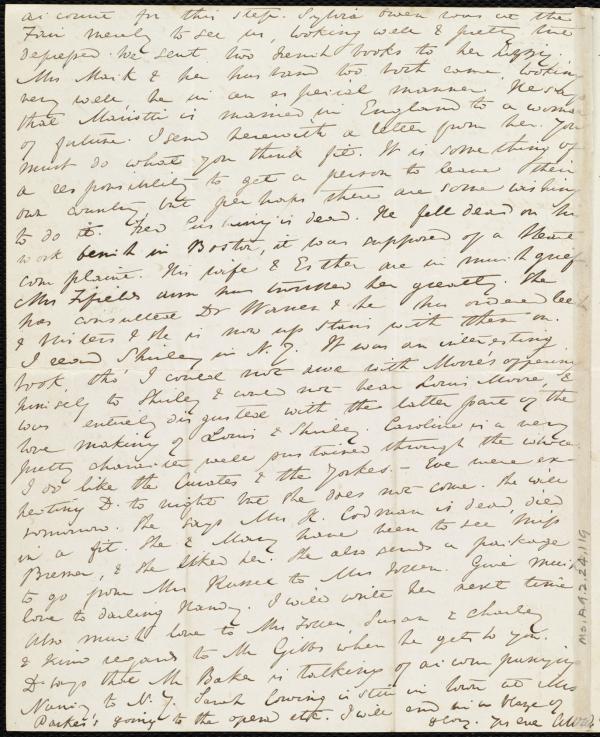 account for this step. Sylvia Owen was at the
Fair merely to see us, looking well & pretty but
depressed. We sent two French books to her Lizzie.
Mrs Mack & her husband too both came, looking
very well, he in an especial manner. He says
that Mariotti is married in England to a woman
of fortune. I send herewith a letter from her. You
must do what you think fit. It is something of
a responsibility to get a person to leave their
own country but perhaps there are some waiting
to do it. is dead. He fell dead on his
work bench in Boston, it was supposed of a Heart
complaint. His wife & Esther are in much grief.
Mrs Fifield's arm has troubled her greatly. She
has consulted Dr Warren & he has ordered leeches
& blisters & she is now up stairs with them on.
I read Shirley in N. Y. It was an interesting
book, tho' I could not away with Moore's offering
himself to Shirley & could not bear Louis Moore, &
was entirely disgusted with the latter part of the
love making of Louis & Shirley. Caroline is a very
pretty character well sustained through the whole.
I do like the Curates & the Yorkes. – We were ex-
pecting D. to night but she does not come. She will
tomorrow. She says Mrs H. Codman is dead, died
in a fit. She & Mary have been to see Miss
Bremer, & she liked her. She also sends a package
to go from Mrs Russell to Mrs Follen. Give much
love to darling Nanny. I will write her next time
Also much love to Mrs Follen, Susan & Charley
& kind regards to Mr Gibbs when he gets to you.
D. says that Mr Baker is talking of accompanying
Nanny to N. Y. Sarah Loring is still in town at Mrs
Parker's going to the opera etc. I will end in a blaze of
glory. Yrs ever C. W.
Ms.A.9.2.24,119